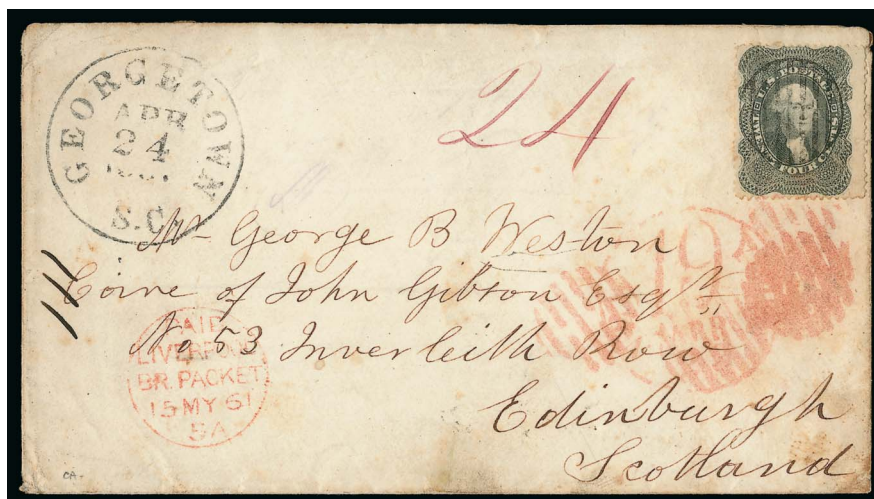 GEORGETOWN
APR
24
S.C.
24
U.S. POSTAGE
TWENTY FOUR CENTS
Mr George B Weston
19
Care of John Gibson Esqr
No 53 Inverleith Row
Edinburgh
Scotland
PAID
LIVERPOOL
BR. PACKET
15 MY 61
5A
CA.